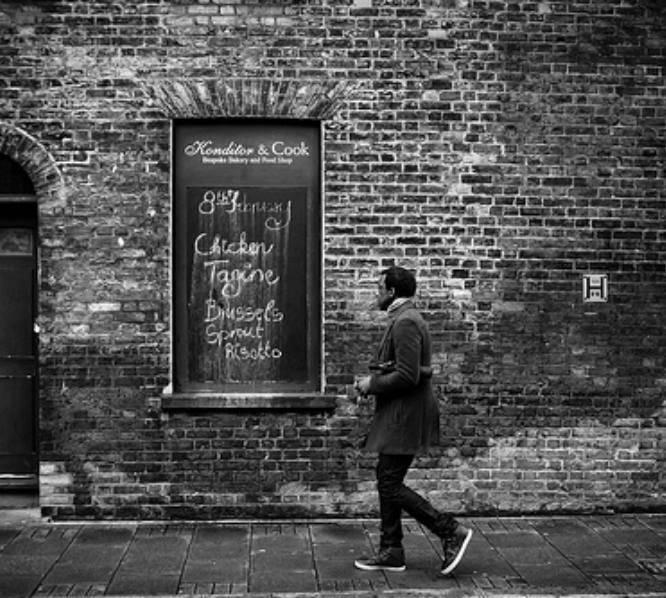 Konditor & Cook
Bespoke Bakery and Food Shop
8th
Chicken
Tagine
Brussels
Sprout
Risotto
H